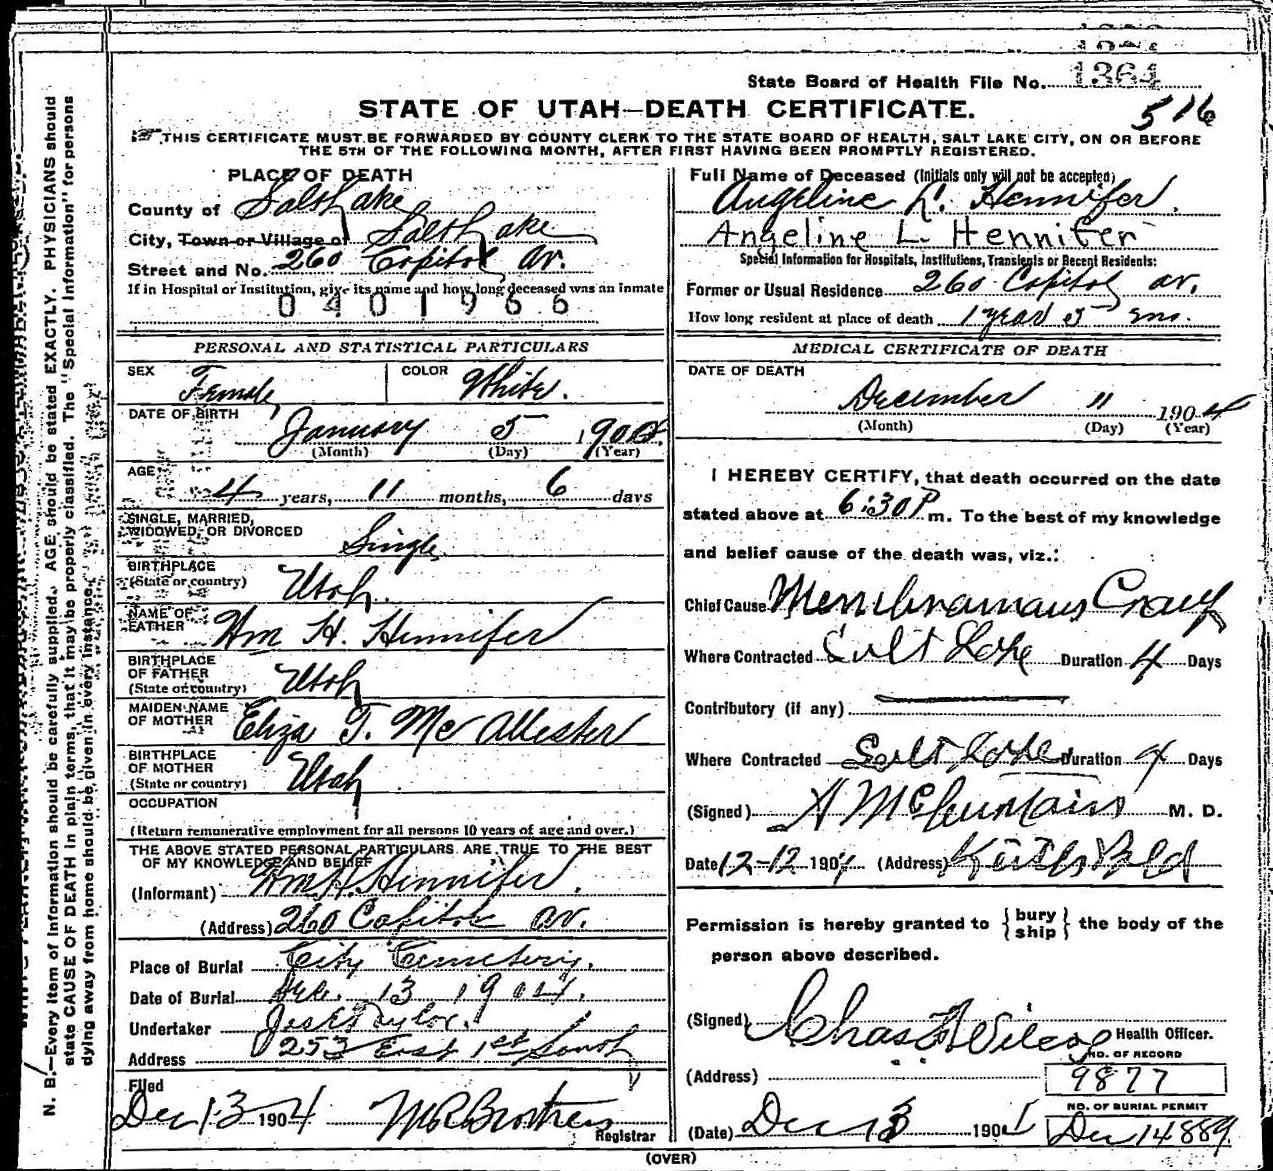 State Board of Health File No. 1364
516
STATE OF UTAH—DEATH CERTIFICATE.
THIS CERTIFICATE MUST BE FORWARDED BY COUNTY CLERK TO THE STATE BOARD OF HEALTH, SALT LAKE CITY, ON OR BEFORE
THE 5TH OF THE FOLLOWING MONTH, AFTER FIRST HAVING BEEN PROMPTLY REGISTERED.
PLACE OF DEATH
County of Salt Lake
City, Town or Village of Salt Lake
Street and No. 260 Capitol av.
If in Hospital or Institution, give its name and how long deceased was an inmate
0401966
PERSONAL AND STATISTICAL PARTICULARS
SEX Female COLOR White.
DATE OF BIRTH
January 5 190
(Month) (Day) (Year)
AGE
4 years, 11 months, 6 days
SINGLE, MARRIED,
WIDOWED, OR DIVORCED Single
BIRTHPLACE
(State or country) Utah.
NAME OF
FATHER Wm H. Hennifer
BIRTHPLACE
OF FATHER
(State or country) Utah
MAIDEN NAME
OF MOTHER Eliza T. McAllester
BIRTHPLACE
OF MOTHER
(State or country) Utah
OCCUPATION
(Return remunerative employment for all persons 10 years of age and over.)
THE ABOVE STATED PERSONAL PARTICULARS ARE TRUE TO THE BEST
OF MY KNOWLEDGE AND BELIEF
(Informant) Wm H. Hennifer.
(Address) 260 Capitol av.
Place of Burial City Cemetery.
Date of Burial Dec. 13 1904.
Undertaker Taylor.
Address 253 East 1st South
Filed
Dec 13 1904
Registrar
Full Name of Deceased (Initials only will not be accepted)
Angeline L. Hennifer.
Angeline L. Hennifer
Special Information for Hospitals, Institutions, Transients or Recent Residents:
Former or Usual Residence 260 Capitol av.
How long resident at place of death 1 year 5 mo.
MEDICAL CERTIFICATE OF DEATH
DATE OF DEATH
December 11 1904
(Month) (Day) (Year)
I HEREBY CERTIFY, that death occurred on the date
stated above at 6:30 P m. To the best of my knowledge
and belief cause of the death was, viz.:
Chief Cause Membranaus Croup
Where Contracted Salt Lake Duration 4 Days
Contributory (if any)
Where Contracted Salt Lake Duration 4 Days
(Signed) M. D.
Date 12-12 1904. (Address)
Permission is hereby granted to { bury
ship } the body of the
person above described.
(Signed) Chas Health Officer.
NO. OF RECORD
(Address) 9877
NO. OF BURIAL PERMIT
(Date) Dec 13 190 Dec 14889
(OVER)
N. B.—Every item of information should be carefully supplied. AGE should be stated EXACTLY. PHYSICIANS should
state CAUSE OF DEATH in plain terms, that it may be properly classified. The "Special Information" for persons
dying away from home should be given in every instance.